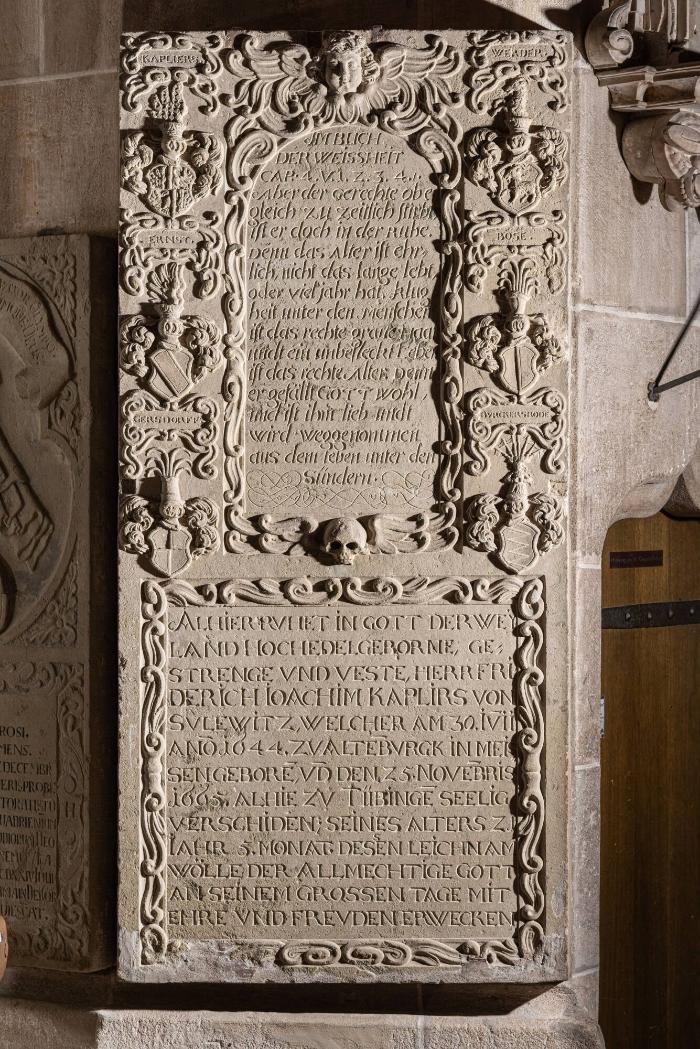 KAPLIERS.
WERDER.
ERNST.
BOSE.
GERSDORFF
WVRCKERSRODE
IM BUCH
DER WEISSHEIT
CAP. 4. V. I. 2. 3. 4.
Aber der gerechte obe
gleich zu zeitlich stirbt
ist er doch in der Ruhe.
Denn das Alter ist ehr,
lich, nicht das lange lebt
oder viel jahr hat. Klug
heit unter den Menschen
ist das rechte graue Haa
undt ein unbefleckt Leben
ist das rechte Alter. Denn
er gefällt GOTT wohl,
und ist ihm lieb undt
wird weggenommen
aus dem leben unter den
Sündern.
ALHIER RVHET IN GOTT DER WEY
LAND HOCHEDELGEBORNE, GE=
STRENGE VND VESTE, HERR FRI
DERICH IOACHIM KAPLIRS VON
SVLEWITZ, WELCHER AM 30. IVII
ANO. 1644. ZV ALTEBVRGK IN MEI
SEN GEBORE VD DEN, 25. NOVEBRIS
1665. ALHIE ZV TÜBINGE SEELIG
VERSCHIDEN; SEINES ALTERS 21
IAHR 5. MONAT. DESEN LEICHNAM
WÖLLE DER ALLMECHTIGE GOTT
AN SEINEM GROSSEN TAGE MIT
EHRE VND FREVDEN ERWECKEN
ROSI.
MENS.
DECEMBR